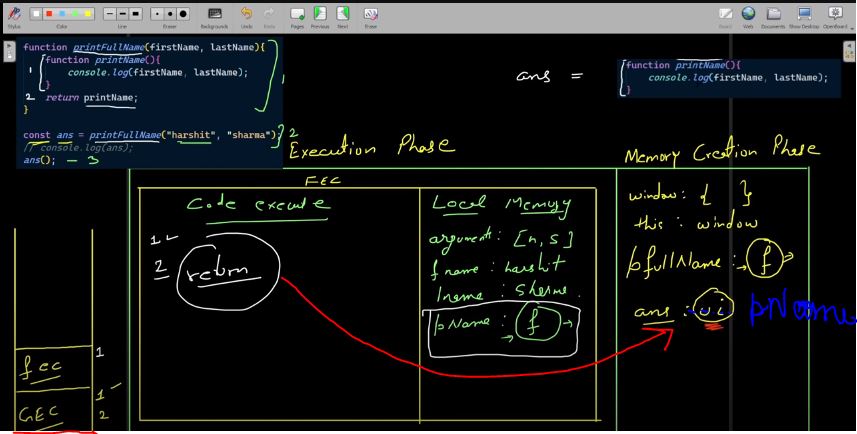 Stylus
Color
Line
Eraser
Backgrounds
Undo
Redo
Pages
Previous
Next
Erase
Web
Documents
Show Desktop
OpenBoard
function printFullName(firstName, lastName){
1 function printName(){
console.log(firstName, lastName);
}
2 return printName;
}
1
const ans = printFullName("harshit", "sharma");
2
// console.log(ans);
ans(); - 3
ans =
function printName(){
console.log(firstName, lastName);
}
Execution Phase
Memory Creation Phase
FEC
Code execute
1
2 return
Local Memory
arguments: [h, s]
fname: harshit
lname: Sharma
pName: f
window: { }
this: window
pfullName: f
ans: u i pName
fec 1
GEC 1
2